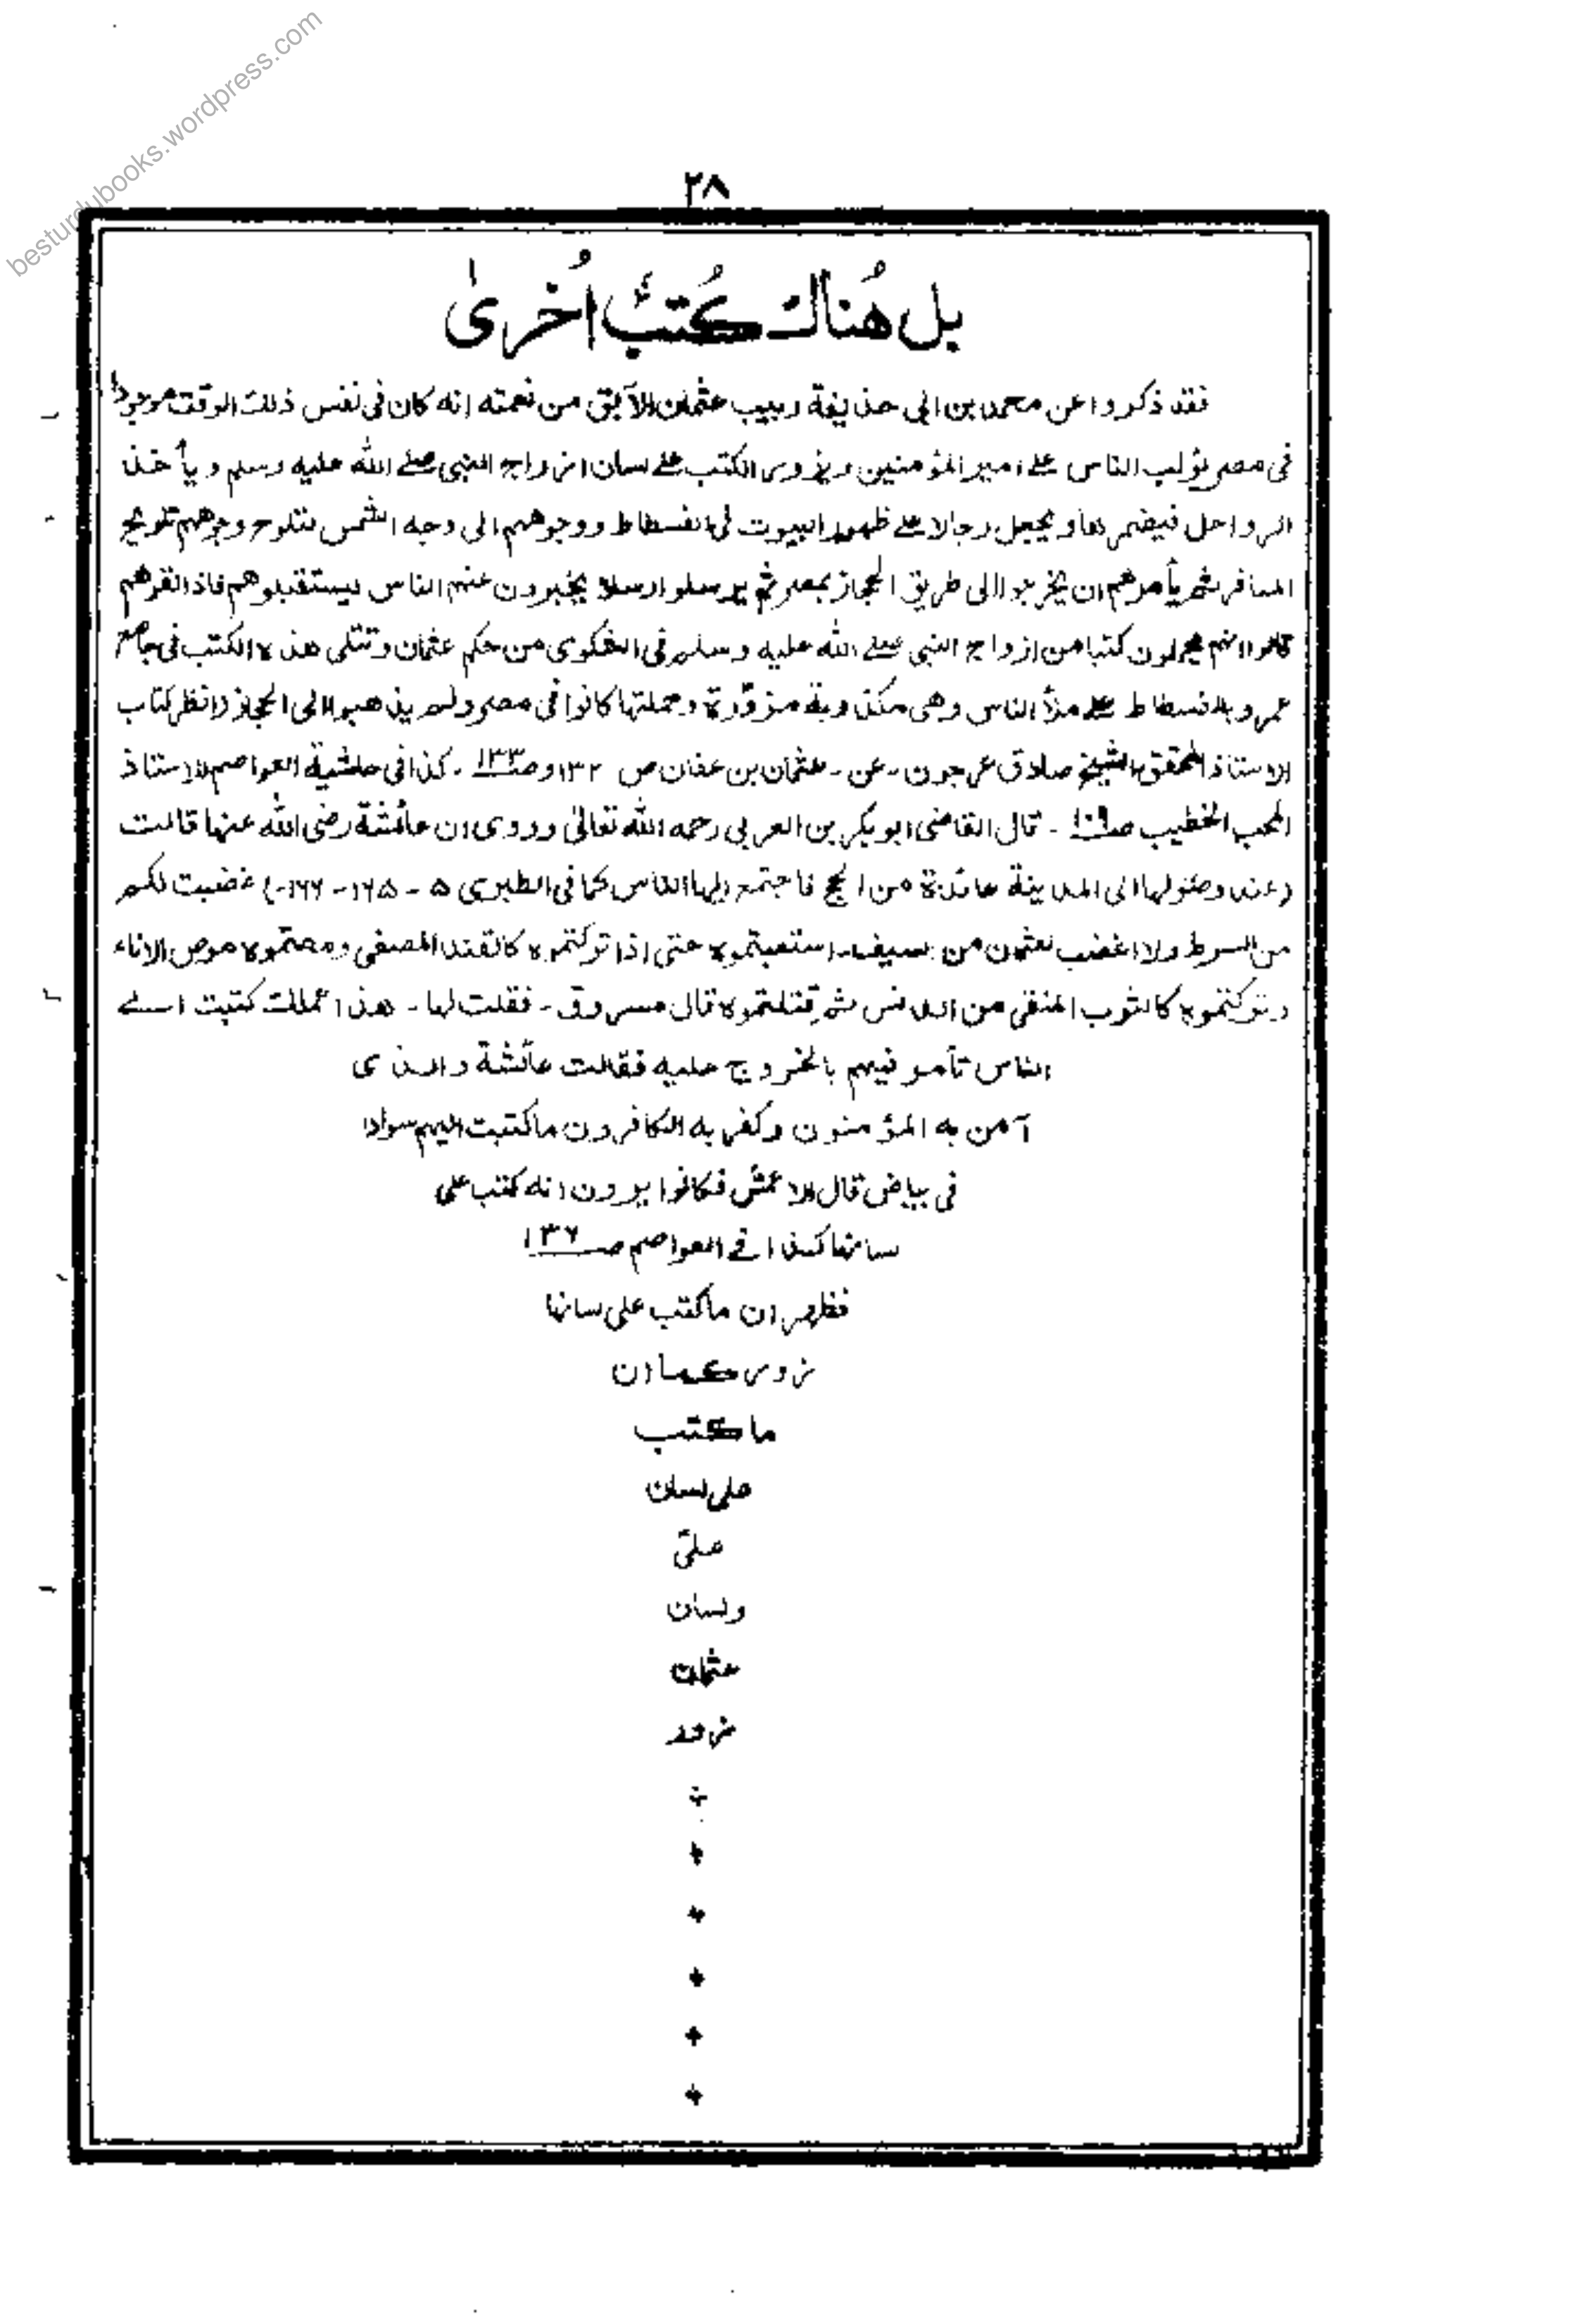 besturdubooks.wordpress.com
٢٨
بل هُناك كُتبٌ اُخرىٰ
فقد ذكروا عن محمد بن ابي حذيفة ربيب عثمان الآبق من نعمته انه كان فى نفس ذلك الوقت موجودا
فى مصر يؤلب الناس على امير المؤمنين ويزور الكتب على لسان ازواج النبى صلى الله عليه وسلم ويأخذ
الرواحل فيضمرها ويجعل رجالا على ظهور البيوت فى الفسطاط ووجوههم الى وجه الشمس لتلوح وجوههم تلويح
المسافر ثم يأمرهم ان يخرجوا الى طريق الحجاز بمصر ثم يرسلوا رسلا يخبرون عنهم الناس ليستقبلوهم فاذا لقوهم
قالوا انهم يحملون كتبا من ازواج النبى صلى الله عليه وسلم فى الشكوى من حكم عثمان وتتلى هذه الكتب فى جامع
عمرو بالفسطاط على ملأ الناس وهى مكذوبة مزوّرة وحملتها كانوا فى مصر ولم يذهبوا الى الحجاز (انظر كتاب
الاستاذ المحقق الشيخ صادق عرجون - عن - عثمان بن عفان ص ١٣٢ وص ١٣٣ - كذا فى حاشية العواصم للاستاذ
المحب الخطيب - قال القاضى ابو بكر بن العربى رحمه الله تعالىٰ وروى ان عائشة رضى الله عنها قالت
(عند وصولها الى المدينة عائدة من الحج فاجتمع اليها الناس كما فى الطبرى ٥ - ١٦٥ - ١٦٦ -) غضبت لكم
من السوط ولا اغضب لعثمان من السيف استعتبتموه حتى اذا تركتموه كالقند المصفى ومصتموه موص الاناء
وتركتموه كالثوب المنقى من الدنس ثم قتلتموه قال مسروق - فقلت لها - هذا عملك كتبت الى
الناس تأمرينهم بالخروج عليه فقالت عائشة والذى
آمن به المؤمنون وكفر به الكافرون ما كتبت اليهم سوادا
فى بياض قال الاعمش فكانوا يرون انه كتب على
لسانها كذا فى العواصم صـ ١٣٦
فظهر ان ما كتب على لسانها
زور كما ان
ما كتب
على لسان
علىّ
ولسان
عثمان
زور